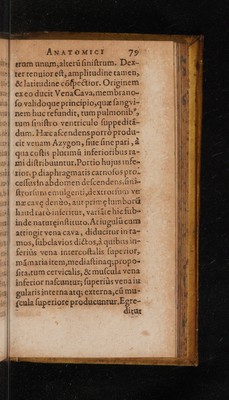 ANATOMICI 79
trum unum, alterū sinistrum. Dex-
ter tenuior est, amplitudine tamen,
& latitudine cōspectior. Originem
ex eo ducit Vena Cava, membrano-
so validoque principio, quæ sangvi-
nem huc refundit, tum pulmonib⁹,
tum sinistro ventriculo suppeditā-
dum. Hæc ascendens porrò produ-
cit venam Azygon, sive sine pari, à
qua costis plurimū inferioribus ra-
mi distribuuntur. Portio hujus infe-
rior, p diaphragmatis carnosos pro-
cessus in abdomen descendens,
næ cavę denuo, aut primę lumborū
haud rarò inseritur, variāte hīc sub-
inde naturę instituto. At jugulū cum
attingit vena cava, diducitur in ra-
mos, subclavios dictos, à quibus in-
feriùs vena intercostalis superior,
māmaria item, mediastina, q; propo-
sita, tum cervicalis, & muscula vena
inferior nascuntur; superiùs vena iu
gularis interna atq; externa, cū mu-
scula superiore producuntur. Egre-
ditur